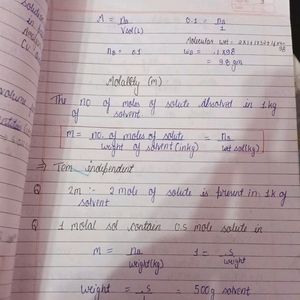 M = nB / Vsol(L)    0.1 = nB / 1
Molecular wt = 2x1+1x32+16x4
= 98
nB = 0.1    wB = .1 x 98
= 9.8 gm
Molality (m)
The no of moles of solute dissolved in 1 kg
of solvent.
m = no. of moles of solute / weight of solvent (in kg) = nB / wt sol (kg)
⇒ Tem independent
Q 2m :- 2 mole of solute is present in 1k of
solvent
Q 1 molal sol contain 0.5 mole solute in
m = nB / weight (kg)    1 = .5 / weight
weight = .5 / 1 = 500g solvent